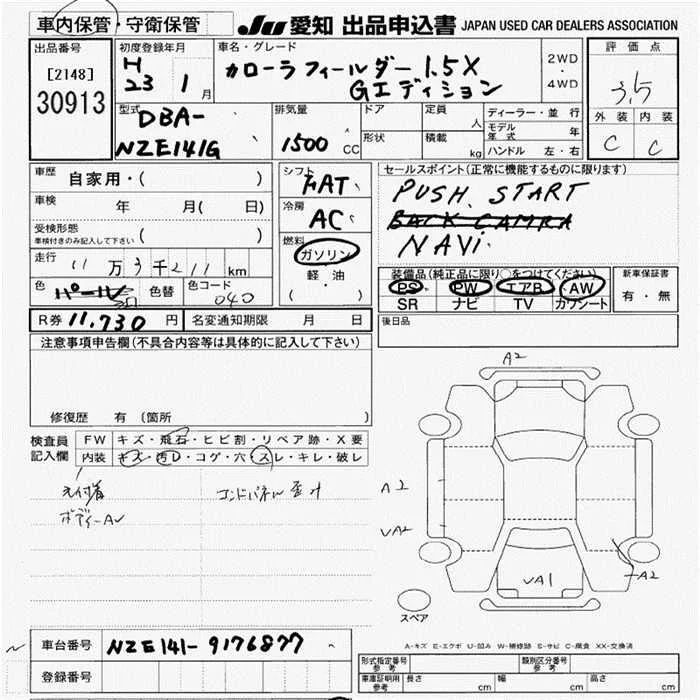 車内保管・守衛保管
JU 愛知 出品申込書 JAPAN USED CAR DEALERS ASSOCIATION
出品番号
[2148]
30913
初度登録年月
H
23 1 月
車名・グレード
カローラフィールダー 1.5X
Gエディション
2WD
・
4WD
評価点
3.5
外装 内装
C C
型式
DBA-
NZE141G
排気量
1500 CC
ドア
形状
定員 人
積載 kg
ディーラー・並行
モデル年式 年
ハンドル 左・右
車歴 自家用・( )
車検 年 月( 日)
受検形態
車検付きのみ記入して下さい ( )
走行 11万3千211km
色 パール 色替 色コード 040
シフト
FAT
冷房
AC
燃料
ガソリン
軽・油
( ・ )
セールスポイント(正常に機能するものに限ります)
PUSH START
BACK CAMRA
NAVi
装備品(純正品に限り○をつけてください)
PS PW エアB AW
SR ナビ TV カワシート
新車保証書
有・無
R券 11,730 円 名変通知期限 月 日
後日品
注意事項申告欄(不具合内容等は具体的に記入して下さい)
修復歴 有 (箇所 )
検査員
記入欄
FW キズ・飛石・ヒビ割・リペア跡・X要
内装 キズ・汚レ・コゲ・穴・スレ・キレ・破レ
ボディーAU
A2
A2
UA2
A2
UA1
スペア
A-キズ E-エクボ U-凹み W-補修跡 S-サビ C-腐食 XX-交換済
車台番号 NZE141-9176877
登録番号
形式指定番号
参考
類別区分番号
参考
車庫証明用
参考
長さ cm 幅 cm 高さ cm